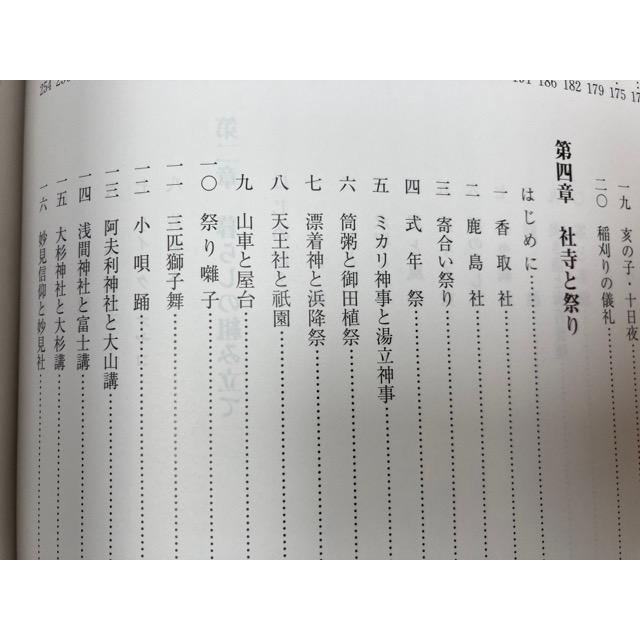 191 186 182 179 175
一九 亥の子・十日夜
二〇 稲刈りの儀礼
第四章 社寺と祭り
はじめに
一 香取社
二 鹿の島社
三 寄合い祭り
四 式年祭
五 ミカリ神事と湯立神事
六 筒粥と御田植祭
七 漂着神と浜降祭
八 天王社と祇園
九 山車と屋台
一〇 祭り囃子
一一 三匹獅子舞
一二 小唄踊
一三 阿夫利神社と大山講
一四 浅間神社と富士講
一五 大杉神社と大杉講
一六 妙見信仰と妙見社
254